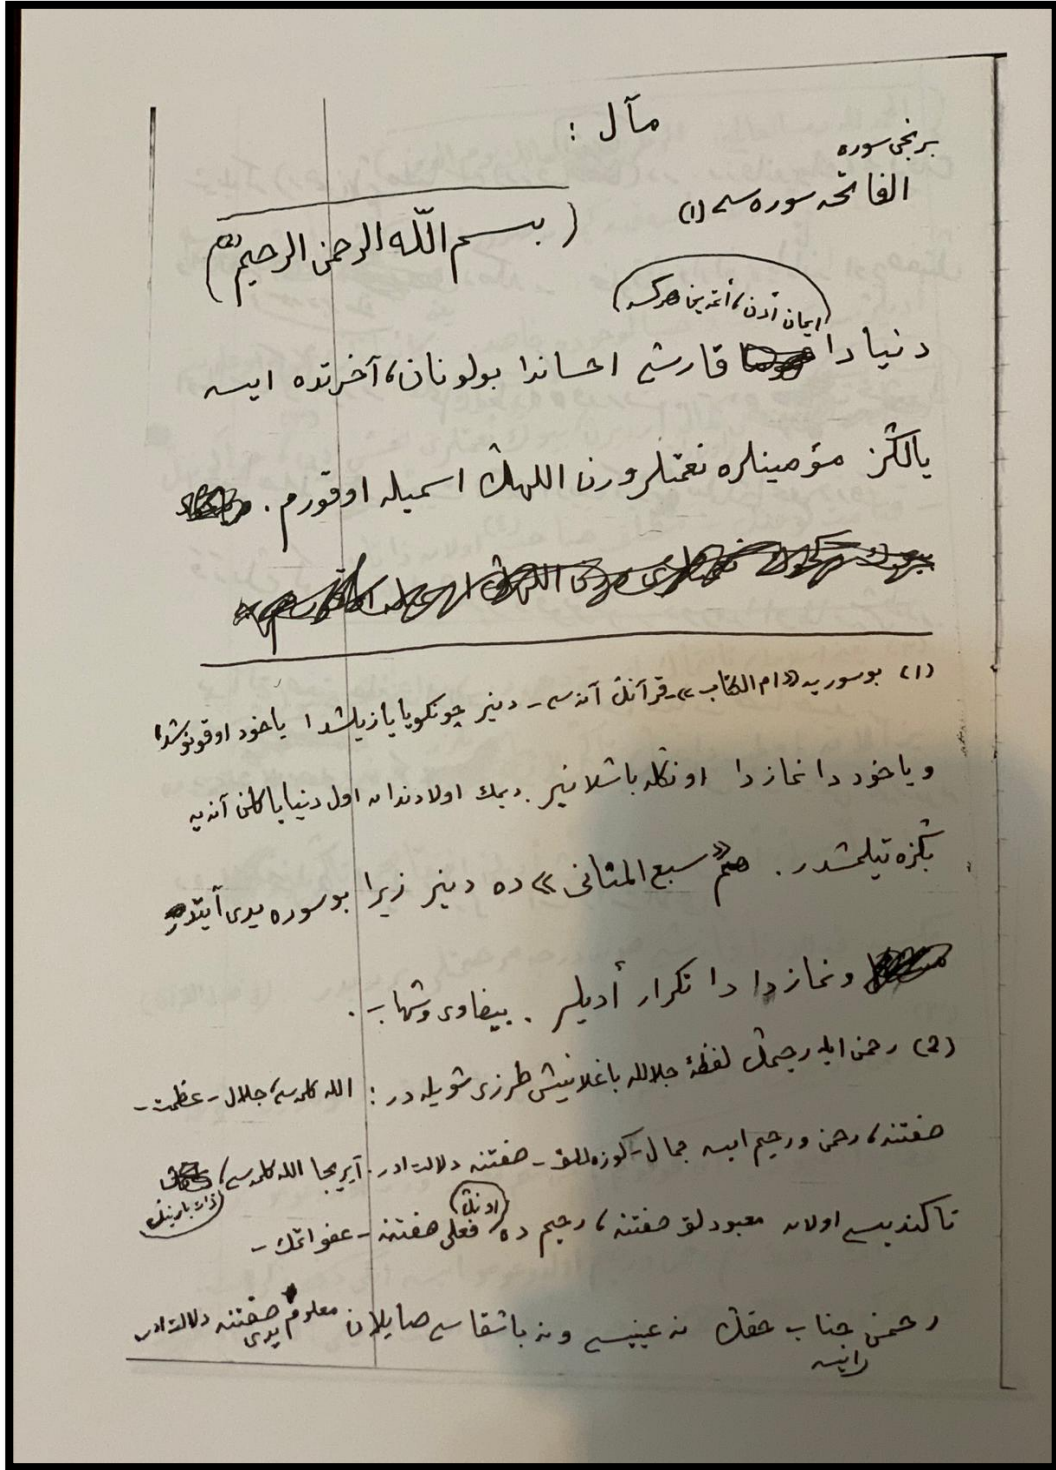 مآل :
برنجی سوره
الفاتحه سوره سی (١)
( بسم اللّه الرحمن الرحيم (٢) )
ايمان أدن، أتمه ين هركسه
دنيا دا قارشی احساندا بولونان، آخرتده ايسه
يالڭز مؤمينلره نعمتلر ورن اللهڭ اسميله اوقورم.
(١) بو سوريه «ام الكتاب» -قرآنڭ آنه سی- دنير چونكو يا يازيلشدا ياخود اوقونوشدا،
و ياخود دا نمازدا اونڭله باشلانير. ديمك اولادندان اول دنيايا كلن آنه يه
بڭزه تيلمشدر. هم «سبع المثانی» ده دينير زيرا بو سوره يدی آيتدر
و نمازدا دا تكرار أديلير. بيضاوی وشهاب.
(٢) رحمن ايله رحيمڭ لفظۀ جلالله باغلانيش طرزی شويله در: الله كلمه سی، جلال -عظمت-
صفتنه، رحمن و رحيم ايسه جمال -كوزه للق- صفتنه دلالت ادر. آيريجا الله كلمه سی،
ذات بارينڭ
تا كنديسی اولان معبودلق صفتنه، رحيم ده اونڭ فعلی صفتنه -عفو اتمك-
رحمن ايسه جناب حقڭ نه عينيسی و نه باشقاسی صايلان معلوم يدی صفتنه دلالت ادر